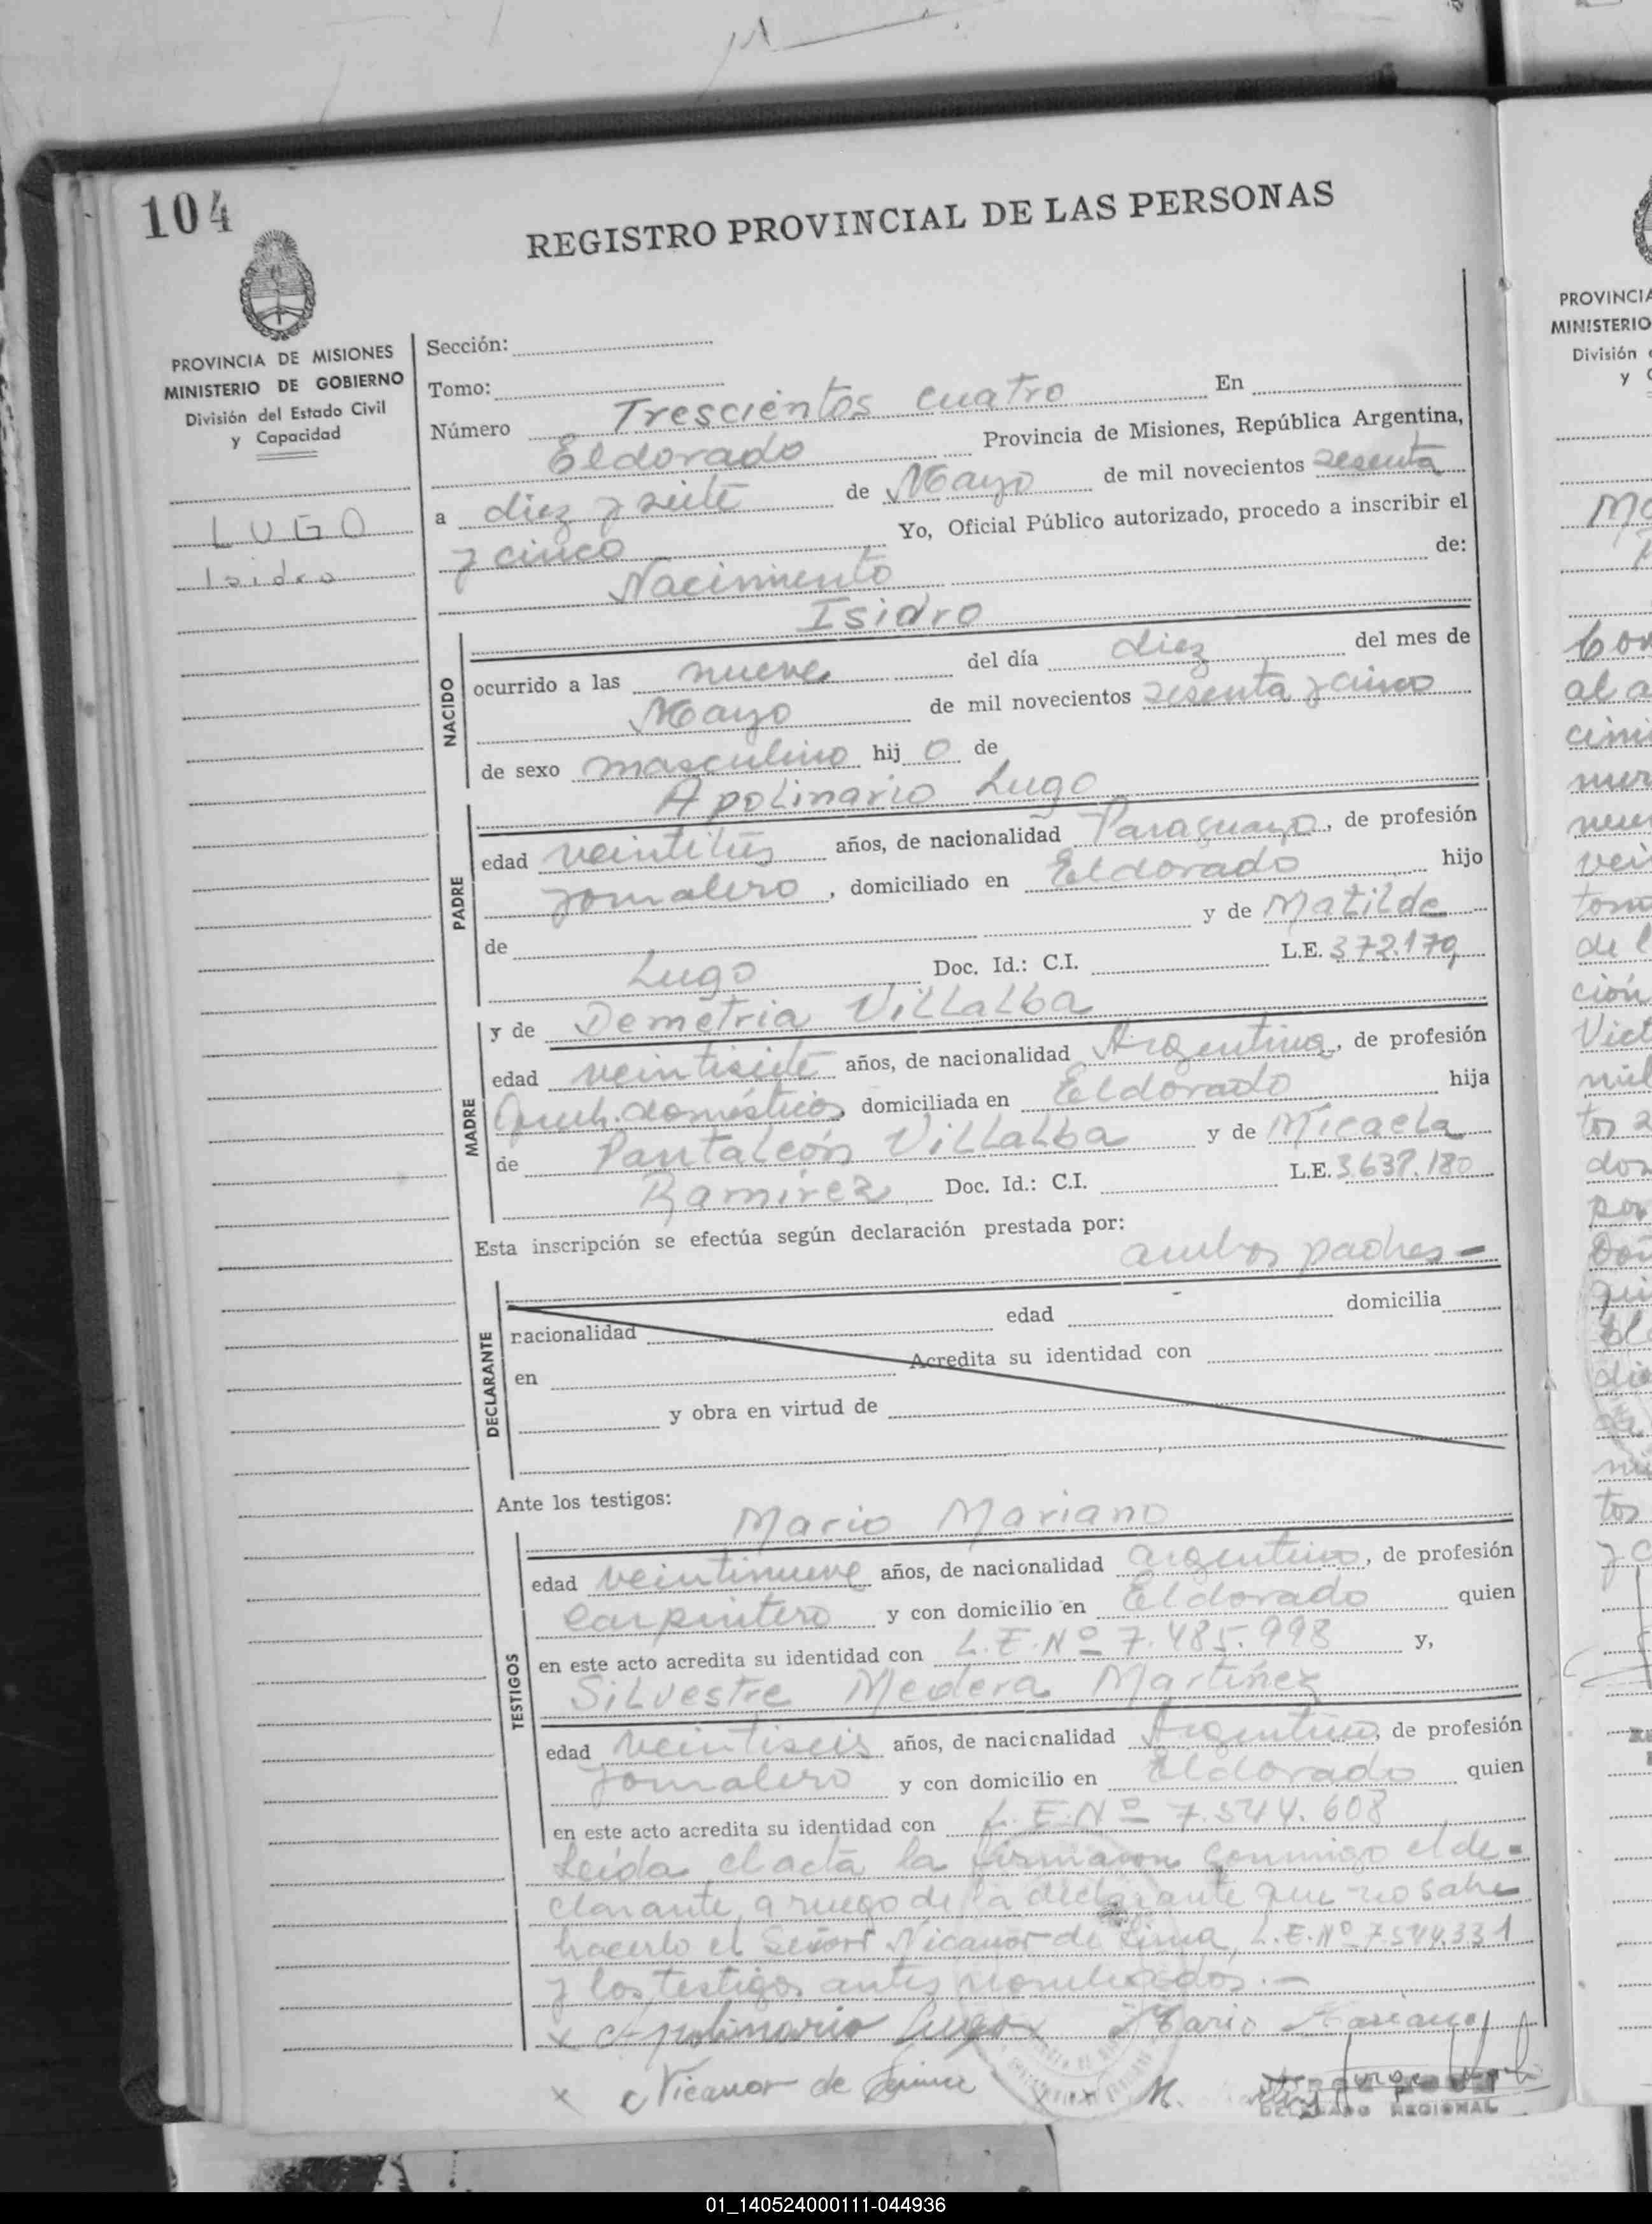 104
REGISTRO PROVINCIAL DE LAS PERSONAS
PROVINCIA DE MISIONES
MINISTERIO DE GOBIERNO
División del Estado Civil
y Capacidad
LUGO
Isidro
Sección:
Tomo:
Número Trescientos cuatro En
Eldorado Provincia de Misiones, República Argentina,
a diez y seite de Mayo de mil novecientos sesenta
y cinco Yo, Oficial Público autorizado, procedo a inscribir el
Nacimiento de:
Isidro
NACIDO
ocurrido a las nueve del día diez del mes de
Mayo de mil novecientos sesenta y cinco
de sexo masculino hij o de
Apolinario Lugo
PADRE
edad años, de nacionalidad Paraguayo, de profesión
jornalero, domiciliado en Eldorado hijo
de y de Matilde
Lugo Doc. Id.: C.I. L.E. 372.179
MADRE
y de Demetria Villalba
edad veintisiete años, de nacionalidad Argentina, de profesión
domésticos, domiciliada en Eldorado hija
de Pantaleón Villalba y de Micaela
Ramirez Doc. Id.: C.I. L.E. 3.637.180
Esta inscripción se efectúa según declaración prestada por:
ambos padres-
DECLARANTE
nacionalidad edad domicilia
en Acredita su identidad con
y obra en virtud de
Ante los testigos:
Mario Mariano
TESTIGOS
edad veintinueve años, de nacionalidad argentino, de profesión
carpintero y con domicilio en Eldorado quien
en este acto acredita su identidad con L.E.Nº 7.485.998 y,
Silvestre Medera Martinez
edad veintiseis años, de nacionalidad Argentino, de profesión
jornalero y con domicilio en Eldorado quien
en este acto acredita su identidad con L.E.Nº 7.544.608
Leída el acta la firmaron conmigo el de-
clarante, a ruego de la declarante que no sabe
hacerlo el Señor Nicanor de Lima, L.E.Nº 7.544.331
y los testigos antes nombrados.-
x Apolinario Lugo x Mario Mariano
x Nicanor de Lima x M.
DELEGADO REGIONAL
PROVINCIA
MINISTERIO
División
y
01_140524000111-044936